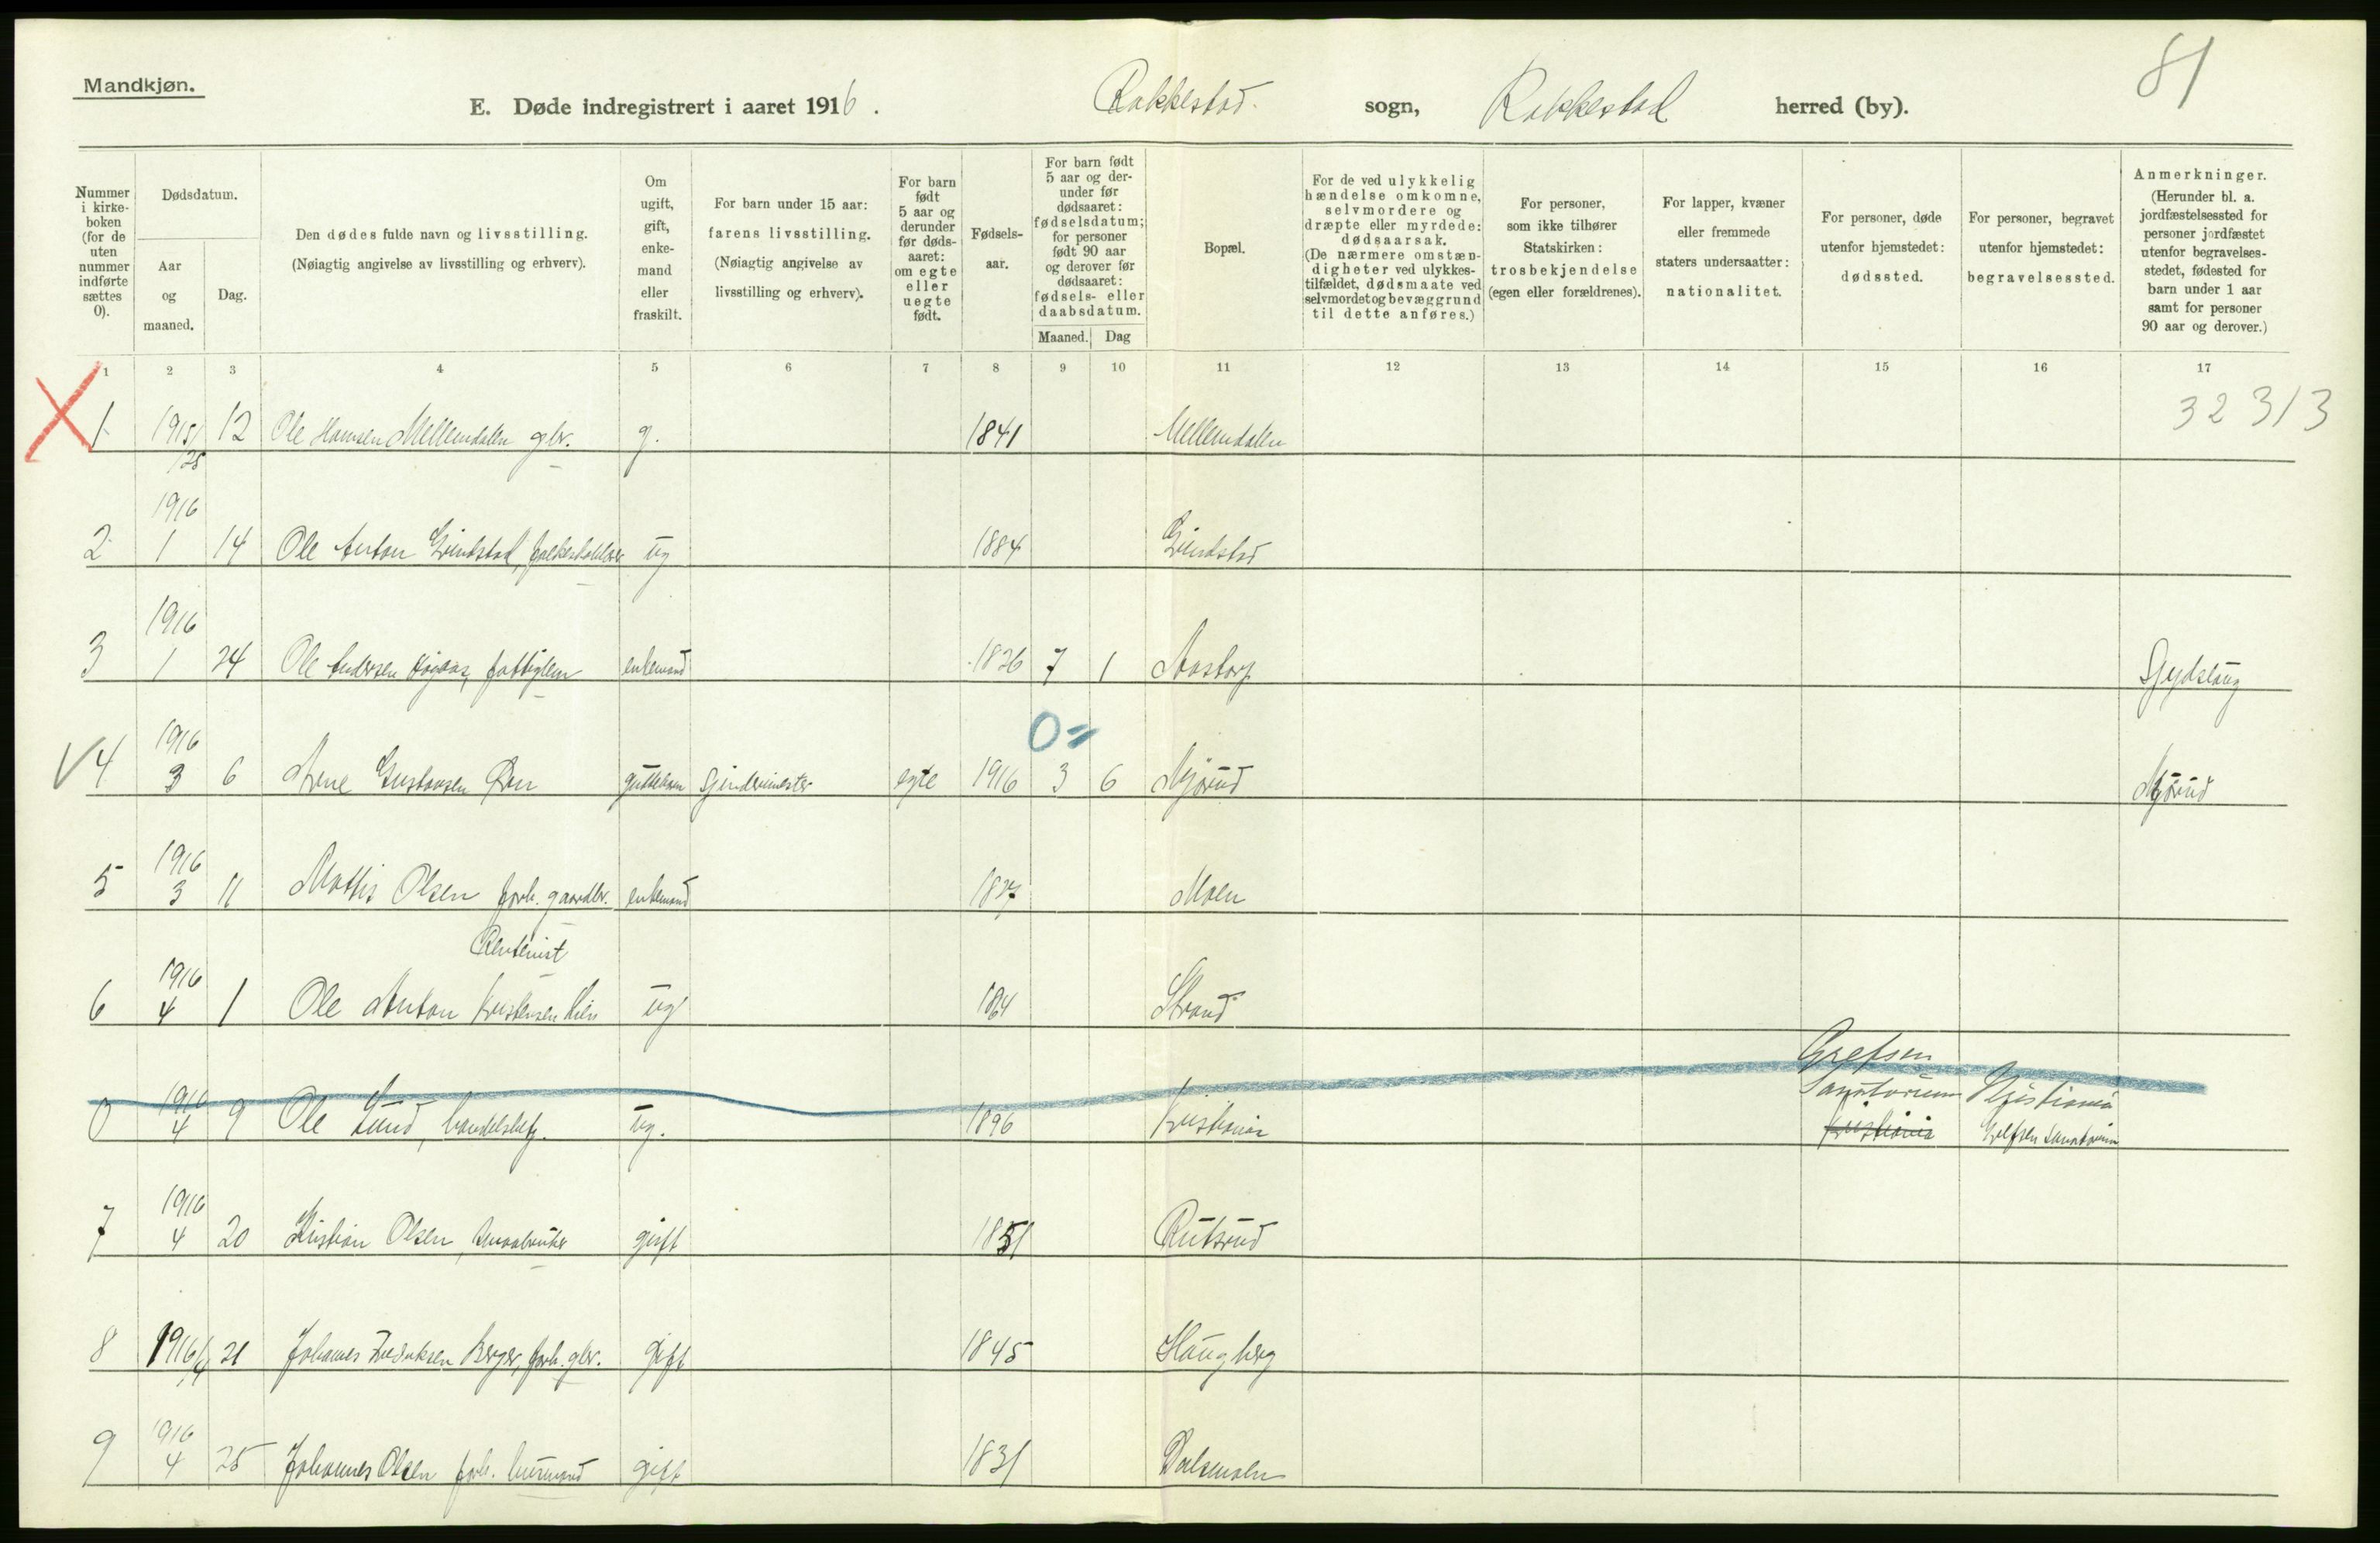 Mandkjøn.
E. Døde indregistrert i aaret 1916. Rakkestad sogn, Rakkestad herred (by).
81
Nummer i kirkeboken (for de uten nummer indførte sættes 0).
Dødsdatum.
Aar og maaned.
Dag.
Den dødes fulde navn og livsstilling.
(Nøiagtig angivelse av livsstilling og erhverv).
Om ugift, gift, enkemand eller fraskilt.
For barn under 15 aar: farens livsstilling.
(Nøiagtig angivelse av livsstilling og erhverv).
For barn født 5 aar og derunder før dødsaaret: om egte eller uegte født.
Fødselsaar.
For barn født 5 aar og derunder før dødsaaret: fødselsdatum; for personer født 90 aar og derover før dødsaaret: fødsels- eller daabsdatum.
Maaned. Dag
Bopæl.
For de ved ulykkelig hændelse omkomne, selvmordere og dræpte eller myrdede: dødsaarsak.
(De nærmere omstændigheter ved ulykkestilfældet, dødsmaate ved selvmordet og bevæggrund til dette anføres.)
For personer, som ikke tilhører Statskirken: trosbekjendelse (egen eller forældrenes).
For lapper, kvæner eller fremmede staters undersaatter: nationalitet.
For personer, døde utenfor hjemstedet: dødssted.
For personer, begravet utenfor hjemstedet: begravelsessted.
Anmerkninger.
(Herunder bl. a. jordfæstelsessted for personer jordfæstet utenfor begravelsesstedet, fødested for barn under 1 aar samt for personer 90 aar og derover.)
1 2 3 4 5 6 7 8 9 10 11 12 13 14 15 16 17
32313
1 1915/ 12 Ole Hansen Mellemdalen gbr. g. 1841 Mellemdalen
2 1916 1 14 Ole Anton Grindstad, ug 1884 Grindstad
3 1916 1 24 Ole Andersen fattiglem enkemand 1826 7 1 Aastorp
0=
4 1916 3 6 Arne Gustavsen guttebarn egte 1916 3 6 Mjørud Mjørud
5 1916 3 11 Mattis Olsen forh. gaardbr. enkemand 1827 Moen
Rentenist
6 1916 4 1 Ole Anton Kristensen ug 1864 Strand
Grefsen
0 1916 4 9 Ole Lund, ug. 1896 Kristiania Sanatorium Kristiania Kristiania Grefsen Sanatorium
7 1916 4 20 Kristian Olsen, gift 1851 Rutsrud
8 1916/4 21 Johannes Fredriksen Berger, forh. gbr. gift 1845 Haugberg
9 1916 4 25 Johannes Olsen forh. husmand gift 1831